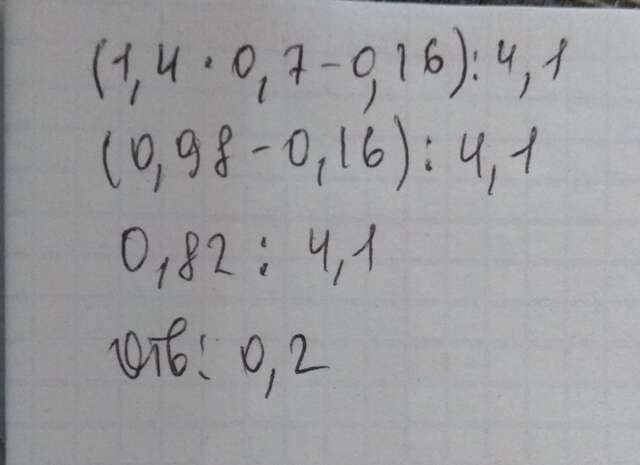 (1,4 · 0,7 - 0,16) : 4,1
(0,98 - 0,16) : 4,1
0,82 : 4,1
Отв: 0,2